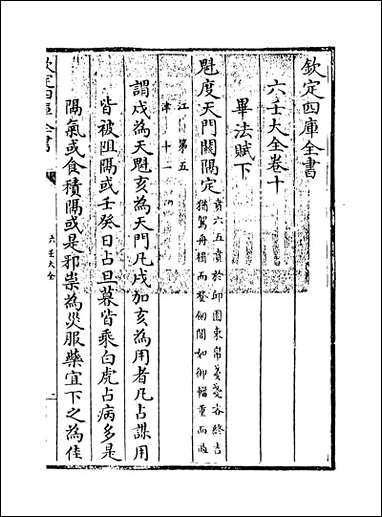 欽定四庫全書
六壬大全卷十
畢法賦下
魁度天門關隔定
賁六五賁於邱園束帛戔戔吝終吉
猶駕舟楫而登
閫如御輜重而
江第五
津十一
謂戌為天魁亥為天門凡戌加亥為用者凡占謀用
皆被阻隔或壬癸日占旦暮皆乘白虎占病多是
隔氣或食積隔或是邪祟為災服藥宜下之為佳
欽定四庫全書
六壬大全